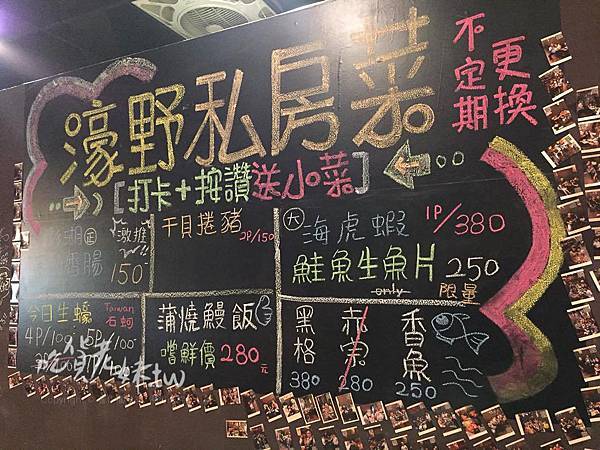 濠野私房菜
不定期
更換
[打卡+按讚送小菜]
湖 正 激推
香腸 150-
干貝捲豬
2P/150
大 海虎蝦 1P/380
鮭魚生魚片 250
only 限量
今日生蠔 Taiwan
石蚵
4P/100 5P/100
蒲燒鰻飯
嚐鮮價280元
黑格 380
赤宗 280
香魚 250